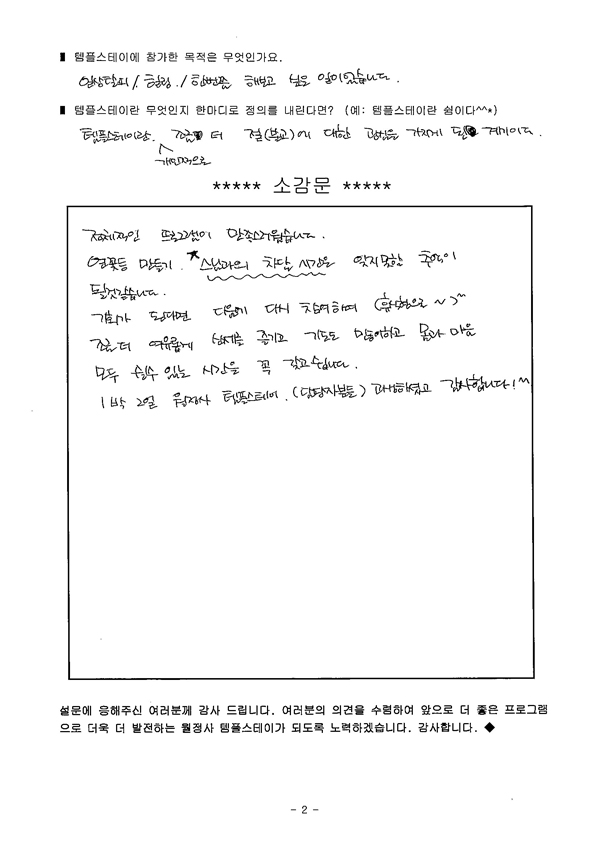 ■ 템플스테이에 참가한 목적은 무엇인가요.
일상탈피/. 힐링. /한번쯤 해보고 싶은 일이었습니다.
■ 템플스테이란 무엇인지 한마디로 정의를 내린다면? (예: 템플스테이란 쉼이다^^*)
템플스테이란. 조금 더 절(불교)에 대한 관심을 가지게 된 계기이다.
개인적으로
***** 소감문 *****
전체적인 프로그램이 만족스러웠습니다.
연꽃등 만들기. ★스님과의 차담 시간은 잊지못할 추억이
될것같습니다.
기회가 된다면 다음에 다시 참여하여 (휴식형으로 ~)~^^
조금더 여유롭게 즐기고 기도도 하고 몸과 마음
모두 쉴수 있는 시간을 꼭 갖고싶니다.
1박 2일 월정사 템플스테이. (담당자분들) 고생하셨고 감사합니다!^^
설문에 응해주신 여러분께 감사 드립니다. 여러분의 의견을 수렴하여 앞으로 더 좋은 프로그램
으로 더욱 더 발전하는 월정사 템플스테이가 되도록 노력하겠습니다. 감사합니다. ◆
- 2 -